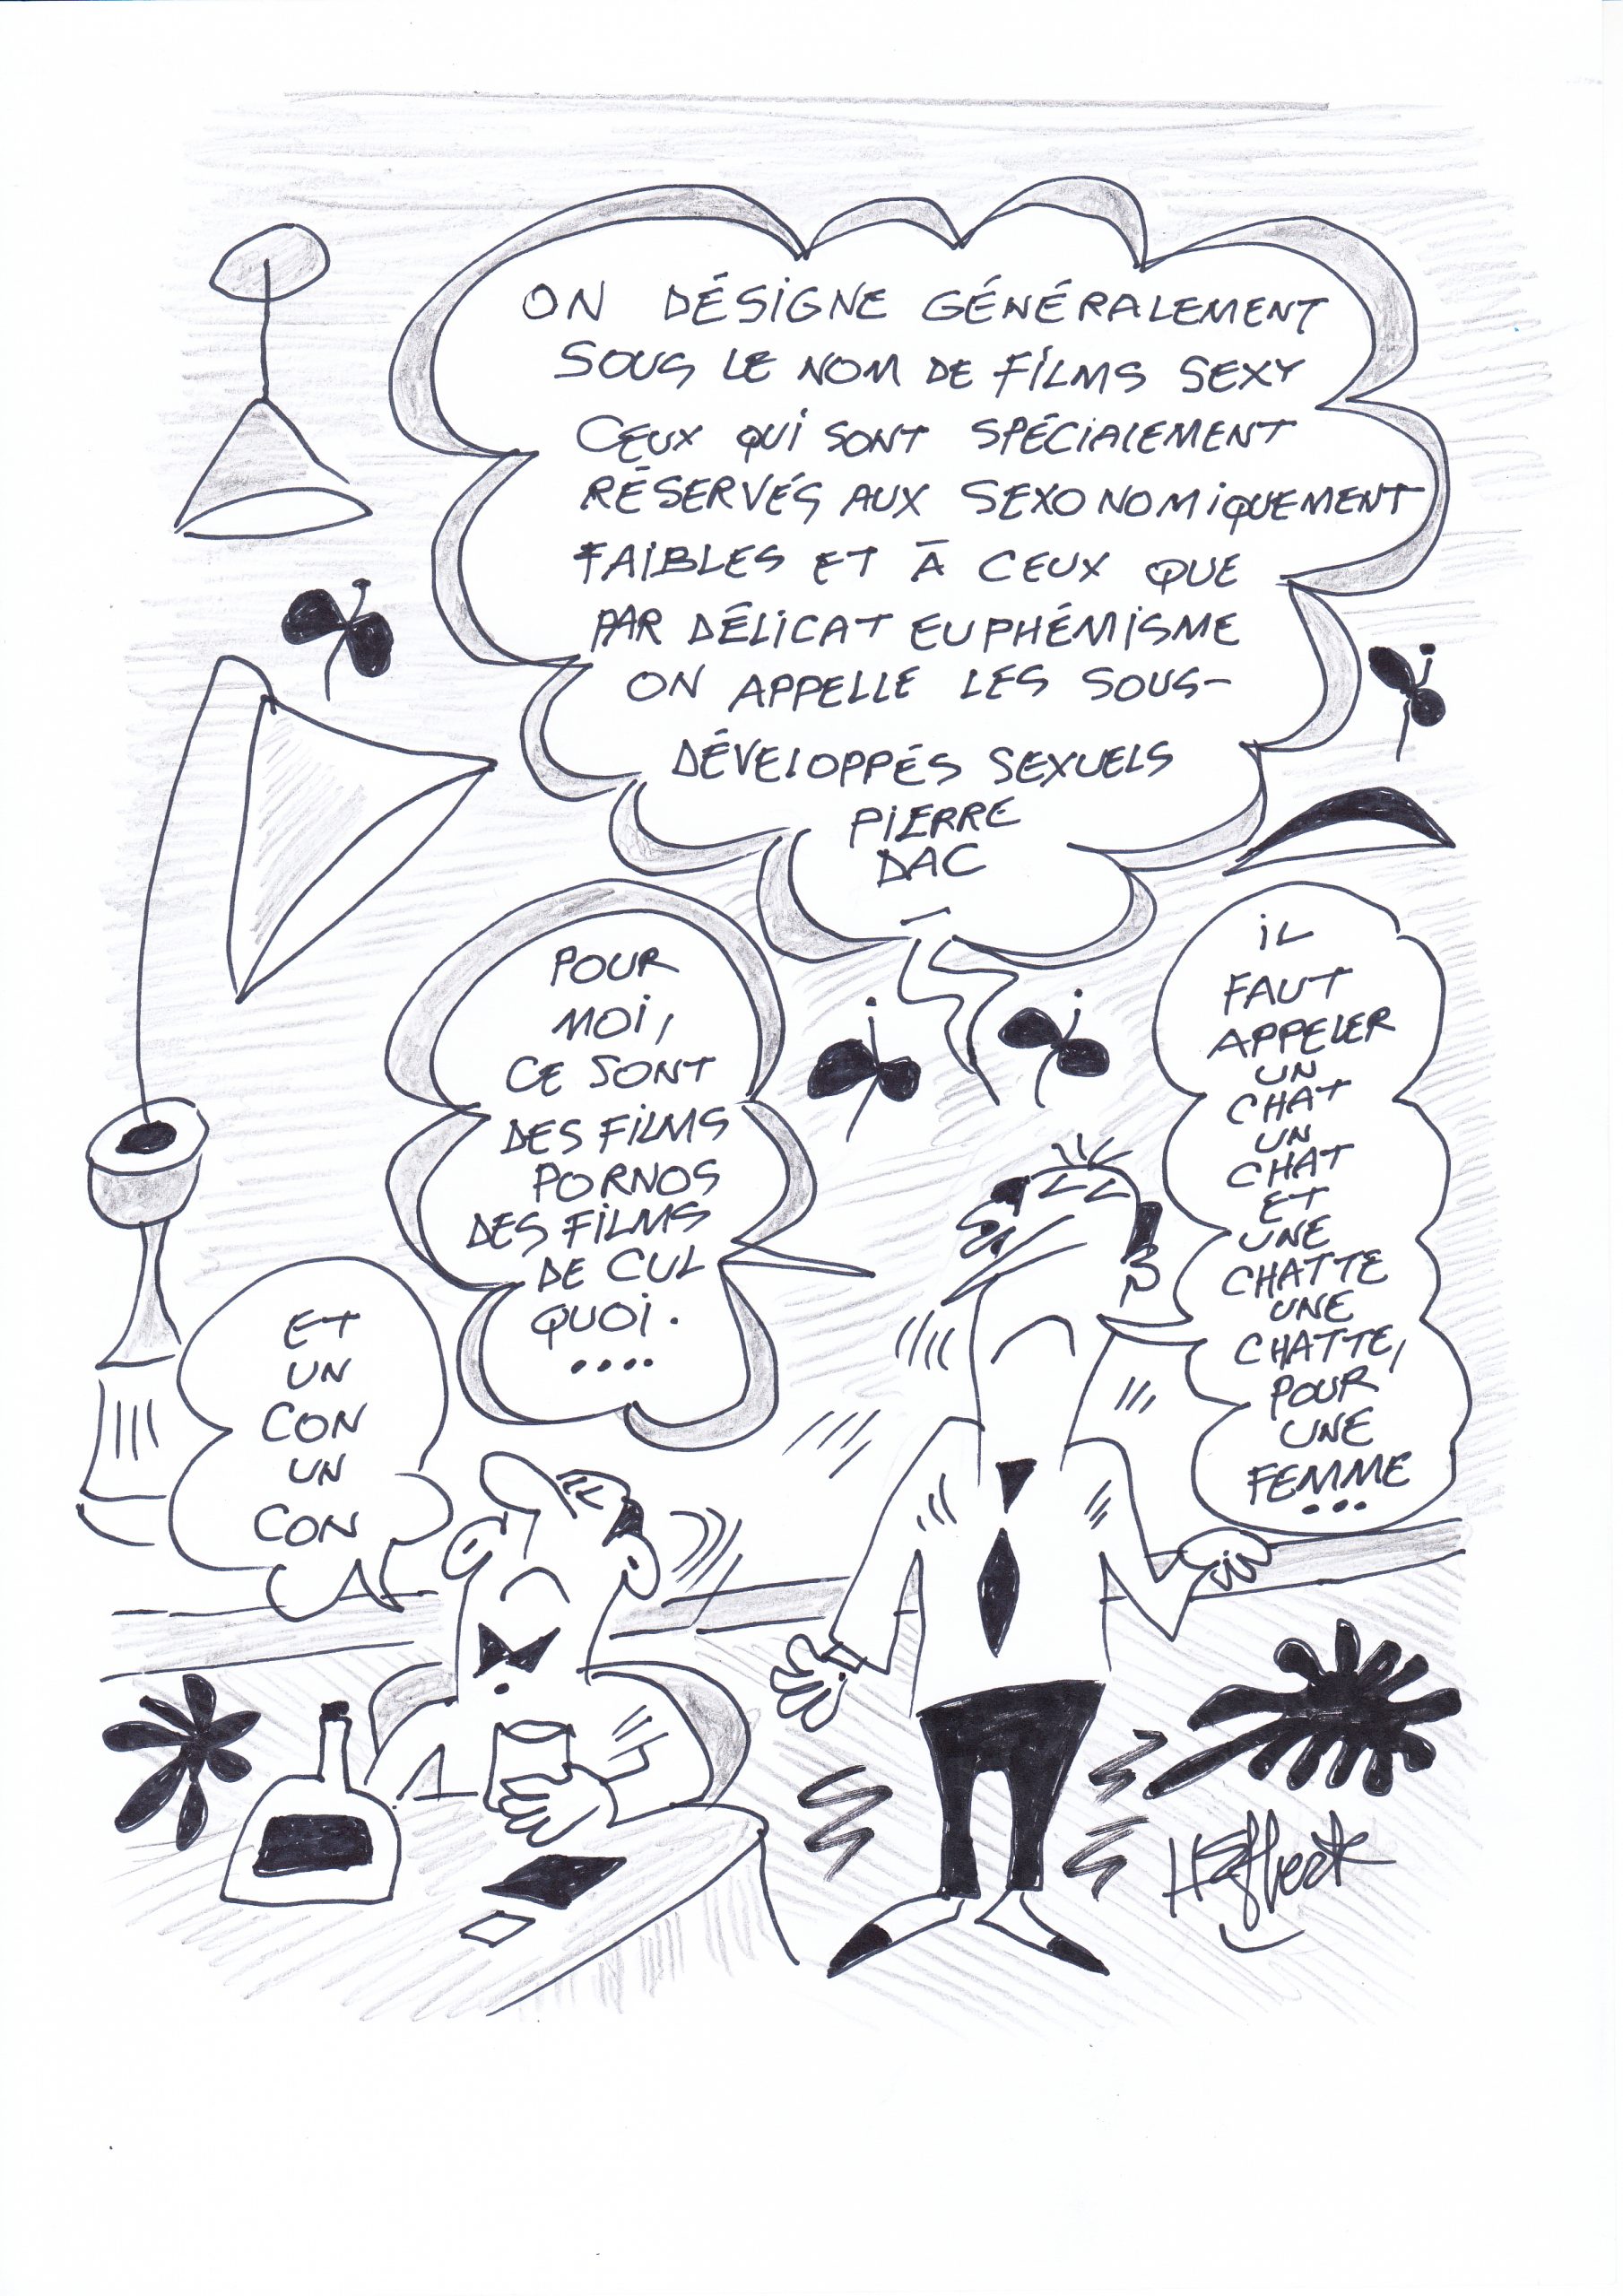 ON DÉSIGNE GÉNÉRALEMENT
SOUS LE NOM DE FILMS SEXY
CEUX QUI SONT SPÉCIALEMENT
RÉSERVÉS AUX SEXONOMIQUEMENT
FAIBLES ET À CEUX QUE
PAR DÉLICAT EUPHÉMISME
ON APPELLE LES SOUS-
DÉVELOPPÉS SEXUELS
PIERRE
DAC
POUR
MOI,
CE SONT
DES FILMS
PORNOS
DES FILMS
DE CUL
QUOI.
....
IL
FAUT
APPELER
UN
CHAT
UN
CHAT
ET
UNE
CHATTE
UNE
CHATTE,
POUR
UNE
FEMME
...
ET
UN
CON
UN
CON